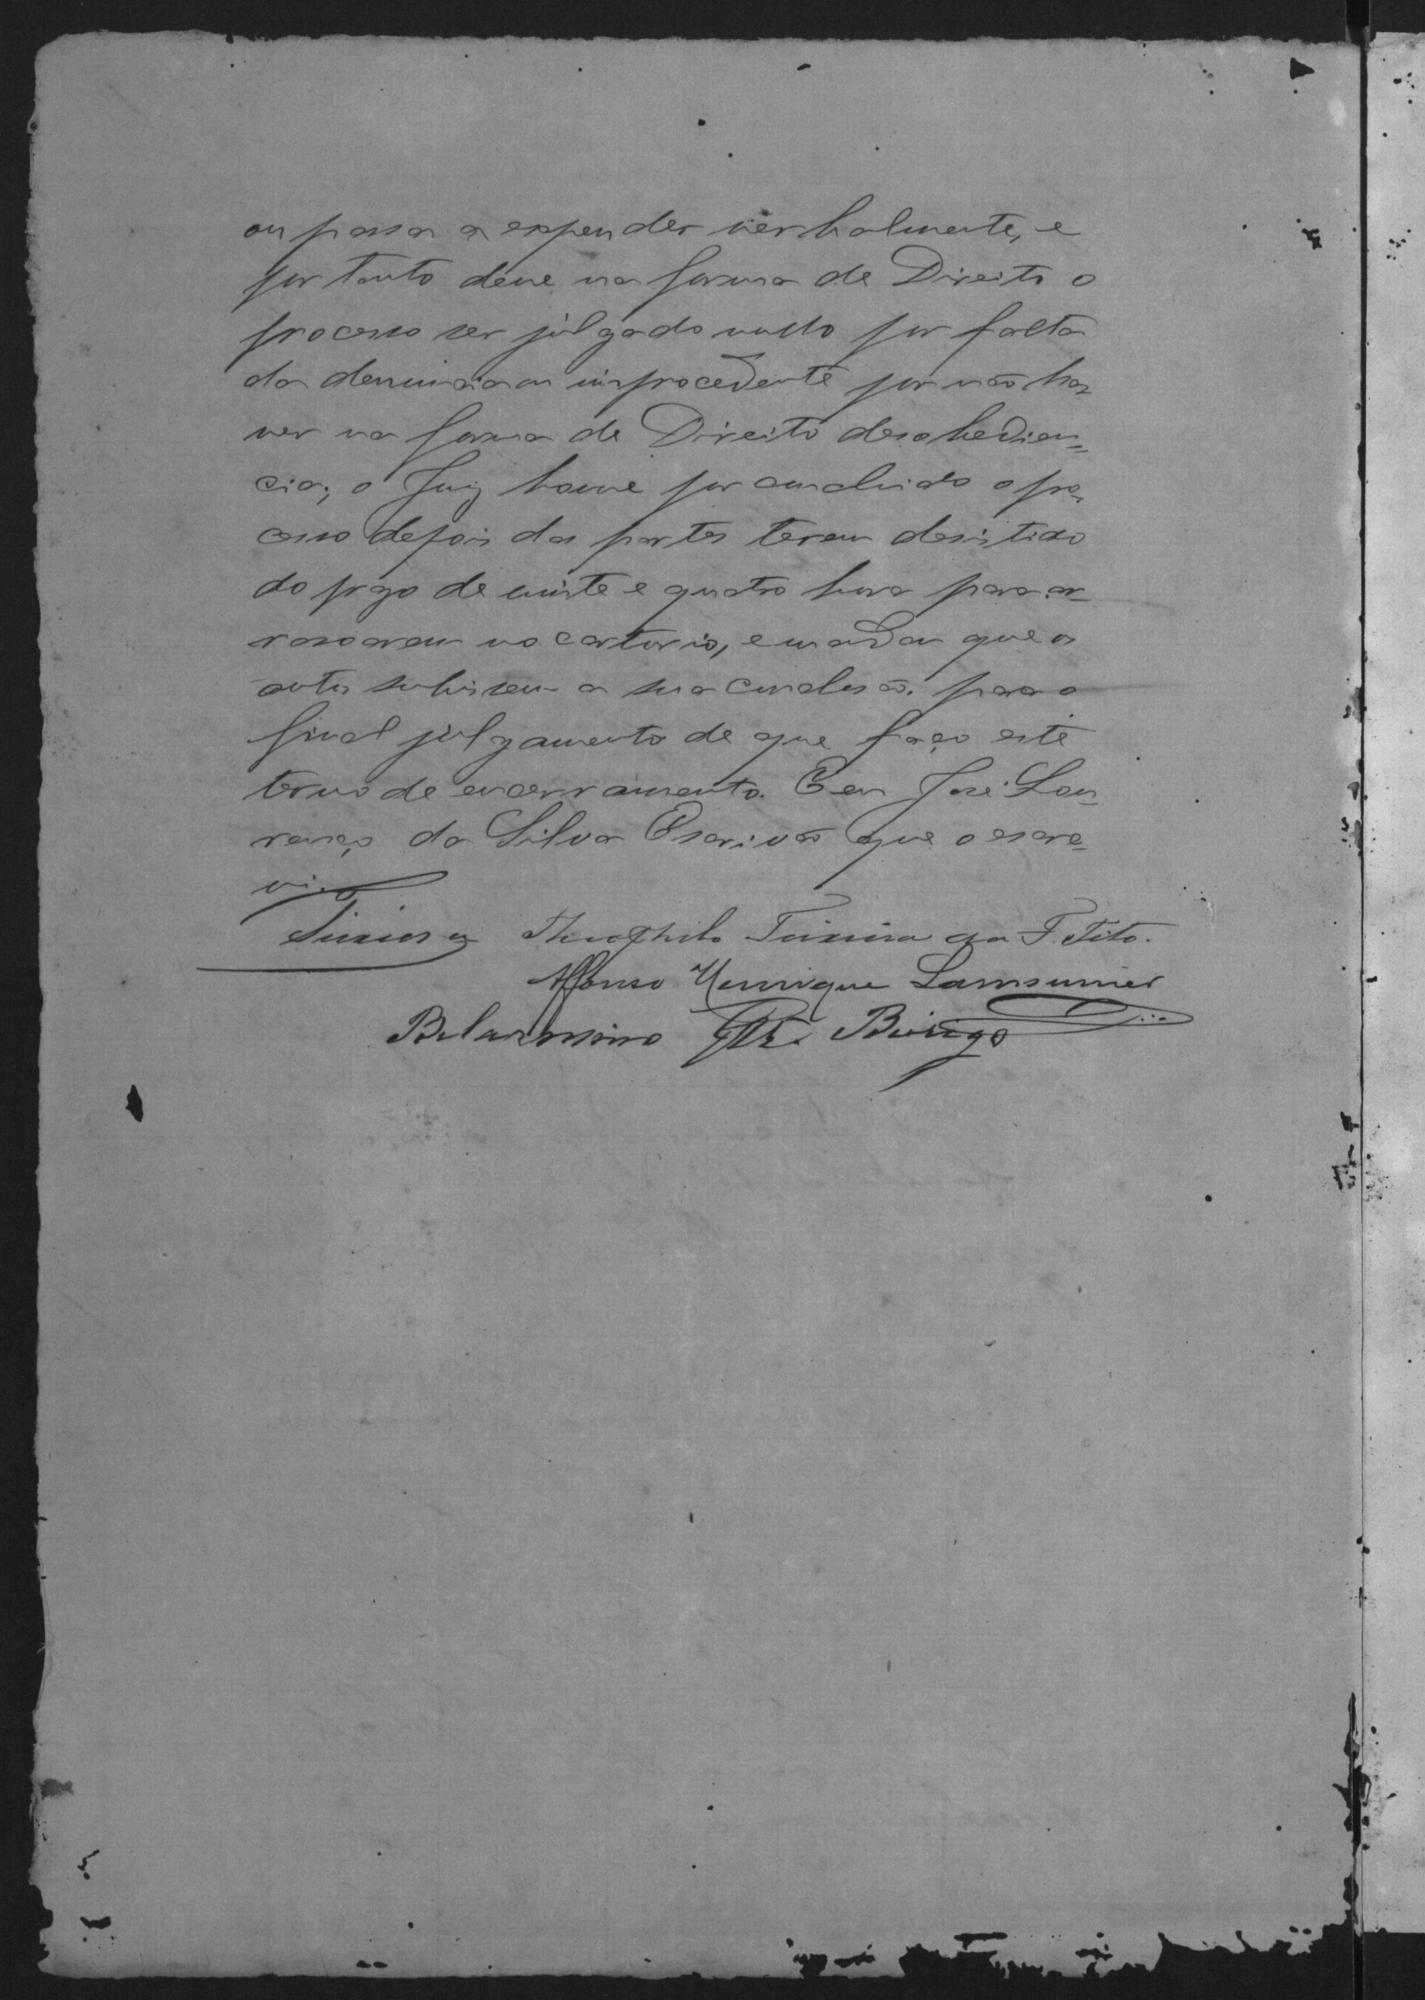 ou passa a expender verbalmente, e
por tanto deve na forma de Direito o
processo ser julgado nullo por falta
da denuncia ou improcedente por não ha-
ver na forma de Direito desobedien=
cia; o Juiz houve por concluido o pro-
cesso depois das partes terem desistido
do prazo de vinte e quatro hora para ar-
rasoarem no cartorio, e mandou que os
autos subissem a sua conclusão para o
final julgamento de que faço este
termo de encerramento. Eu José Lou-
renço da Silva Escrivão que o escre-
vi
Teixeira Theophilo Teixeira da F. Tito.
Affonso Henrique Lamounier
Belarmino Birigo